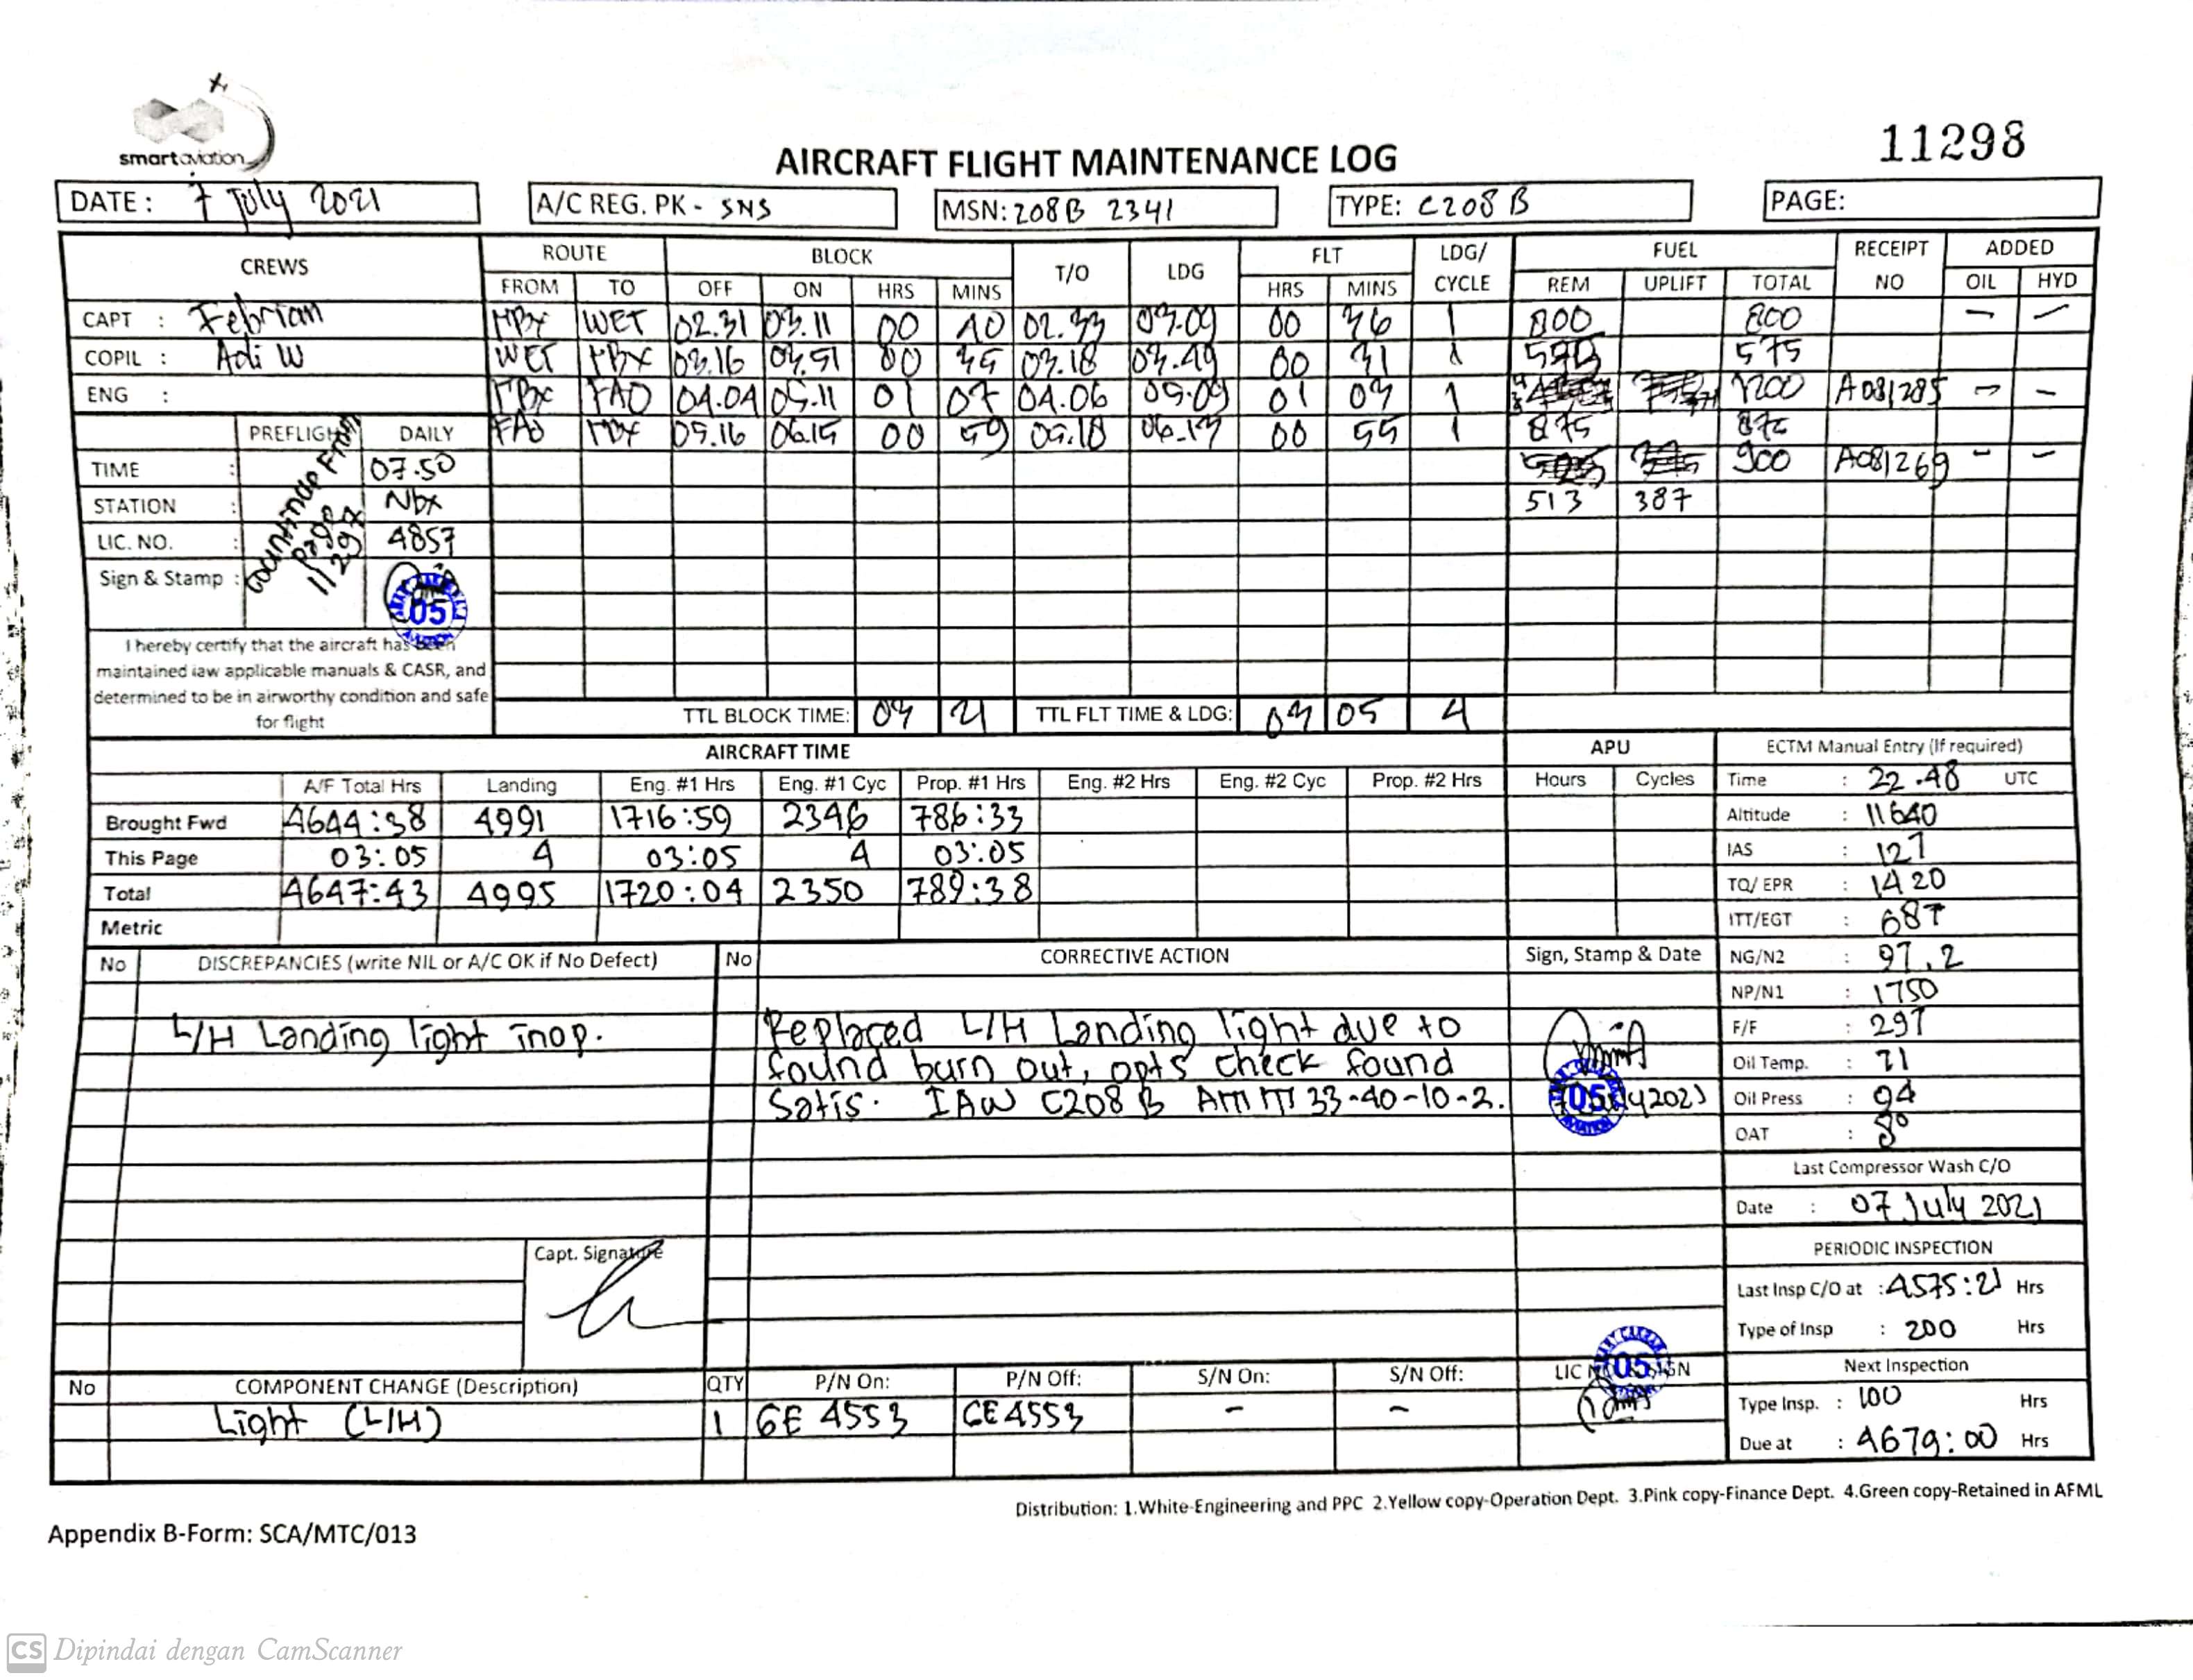 smart aviation
11298
AIRCRAFT FLIGHT MAINTENANCE LOG
DATE: 7 July 2021 A/C REG. PK - SNS MSN: 208B 2341 TYPE: C208B PAGE:
CREWS ROUTE BLOCK T/O LDG FLT LDG/ CYCLE FUEL RECEIPT NO ADDED
FROM TO OFF ON HRS MINS HRS MINS REM UPLIFT TOTAL OIL HYD
CAPT : Febrian NBX WET 02.31 03.11 00 40 02.33 03.09 00 36 1 800 800 - -
COPIL : Adi W WET NBX 03.16 03.51 00 35 03.18 03.49 00 31 1 575 575
ENG : NBX FAO 04.04 05.11 01 07 04.06 05.09 01 03 1 1200 A081285 - -
PREFLIGHT DAILY FAO NBX 05.16 06.15 00 59 05.18 06.13 00 55 1 875 875
TIME : 07.50 900 A081269 - -
STATION : Nbx 513 387
LIC. NO. : 4857
Sign & Stamp :
Countinue From Page 11297
05
AVIATION
I hereby certify that the aircraft has been
maintained iaw applicable manuals & CASR, and
determined to be in airworthy condition and safe
for flight
TTL BLOCK TIME: 03 21 TTL FLT TIME & LDG: 03 05 4
AIRCRAFT TIME APU ECTM Manual Entry (If required)
A/F Total Hrs Landing Eng. #1 Hrs Eng. #1 Cyc Prop. #1 Hrs Eng. #2 Hrs Eng. #2 Cyc Prop. #2 Hrs Hours Cycles Time : 22.48 UTC
Brought Fwd 4644:38 4991 1716:59 2346 786:33 Altitude : 11640
This Page 03:05 4 03:05 4 03:05 IAS : 127
Total 4647:43 4995 1720:04 2350 789:38 TQ/ EPR : 1420
Metric ITT/EGT : 687
No DISCREPANCIES (write NIL or A/C OK if No Defect) No CORRECTIVE ACTION Sign, Stamp & Date NG/N2 : 97.2
NP/N1 : 1750
L/H Landing light inop. Replaced L/H Landing light due to F/F : 297
found burn out, opts check found Oil Temp. : 71
Satis. IAW C208B AMM 33-40-10-2. 05 2021 Oil Press : 94
AVIATION
OAT : 8°
Last Compressor Wash C/O
Date : 07 July 2021
Capt. Signature PERIODIC INSPECTION
Last Insp C/O at : 4575:21 Hrs
Type of Insp : 200 Hrs
05
Next Inspection
No COMPONENT CHANGE (Description) QTY P/N On: P/N Off: S/N On: S/N Off: LIC SIGN
Light (L/H) 1 GE 4553 GE 4553 - - Type Insp. : 100 Hrs
Due at : 4679:00 Hrs
Distribution: 1.White-Engineering and PPC 2.Yellow copy-Operation Dept. 3.Pink copy-Finance Dept. 4.Green copy-Retained in AFML
Appendix B-Form: SCA/MTC/013
CS Dipindai dengan CamScanner